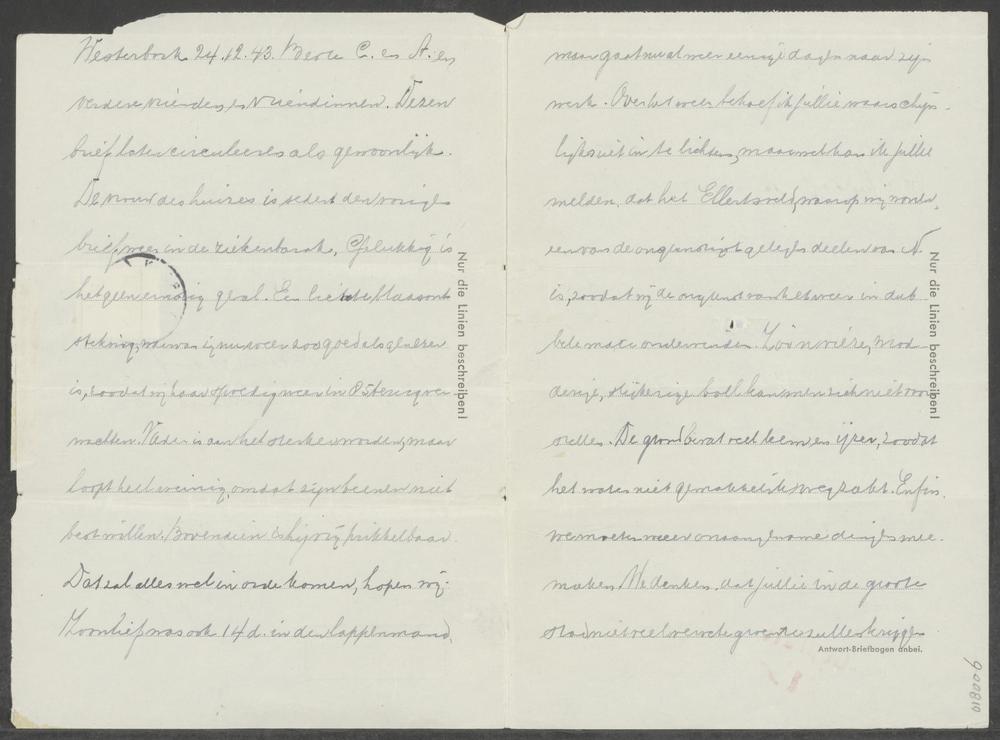 Westerbork 24.12.43. Beste C. en A. en
verdere vrienden en vriendinnen. Dezen
brief laten circuleeren als gewoonlijk.
De vrouw des huizes is sedert den vorigen
brief weer in de ziekenbarak. Gelukkig is
het geen ernstig geval. Een lichte blaasont-
steking, waarvan zij nu weer zoo goed als genezen
is, zoodat wij haar spoedig weer in
wachten. Vader is aan het sterker worden, maar
loopt heel weinig, omdat zijn beenen niet
best willen. Bovendien is hij prikkelbaar.
Dat zal alles wel in orde komen, hopen wij.
Zoonlief was ook 14 d. in den lappenmand,
Nur die Linien beschreiben!
maar gaat nu al weer eenige dagen naar zijn
werk. Over het weer behoef ik jullie waarschijn-
lijk niet in te lichten, maar wel kan ik jullie
melden, dat het Ellertsveld, waarop wij wonen,
een van de ongunstigst gelegen deelen van N.
is, zoodat wij de ongunst van het weer in dub-
bele mate ondervinden. Zóó'n vieze, mod-
derige, slijkerige boel kan men zich niet voor-
stellen. De grond bevat veel leem en ijzer, zoodat
het water niet gemakkelijk wegzakt. Enfin,
we moeten weer onaangename dingen mee-
maken. We denken, dat jullie in de groote
stad niet veel versche groenten zullen krijgen
Nur die Linien beschreiben!
Antwort-Briefbogen anbei.
900810